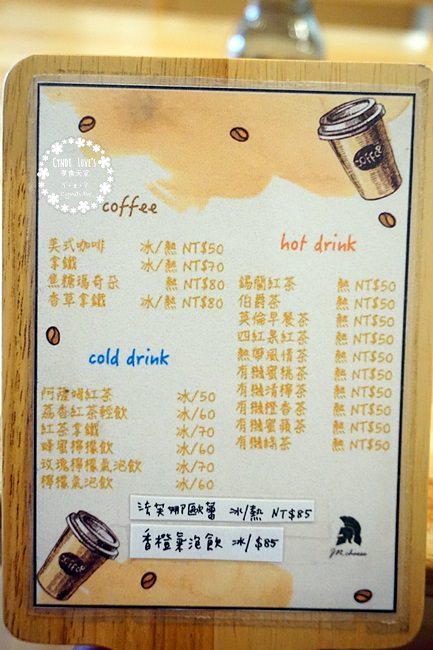 CYNDI LOVE'S
coffee
美式咖啡 冰/熱 NT$50
拿鐵 冰/熱 NT$70
焦糖瑪奇朵 熱 NT$80
香草拿鐵 冰/熱 NT$80
hot drink
錫蘭紅茶 熱 NT$50
伯爵茶 熱 NT$50
英倫早餐茶 熱 NT$50
四紅果紅茶 熱 NT$50
熱帶風情茶 熱 NT$50
有機蜜桃茶 熱 NT$50
有機清檸茶 熱 NT$50
有機橙香茶 熱 NT$50
有機蜜蘋茶 熱 NT$50
有機綠茶 熱 NT$50
cold drink
阿薩姆紅茶 冰/50
荔香紅茶輕飲 冰/60
紅茶拿鐵 冰/70
蜂蜜檸檬飲 冰/60
玫瑰檸檬氣泡飲 冰/70
檸檬氣泡飲 冰/60
法芙娜歐蕾 冰/熱 NT$85
香橙氣泡飲 冰/$85
JR cheese
coffee
coffee